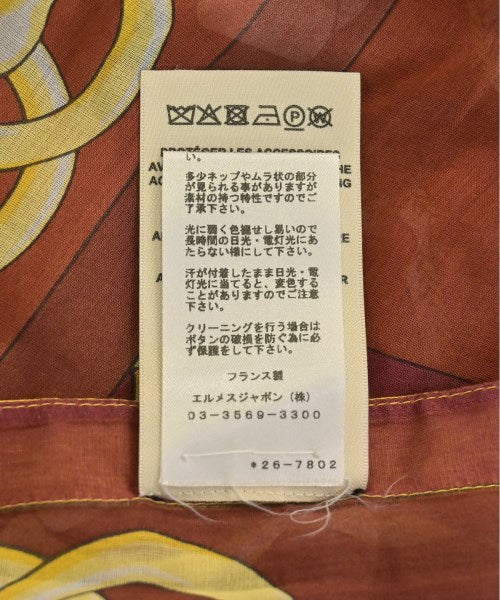 PROTÉGER LES ACCESSOIRES
い。
多少ネップやムラ状の部分
が見られる事がありますが
素材の持つ特性ですのでご
了承下さい。
光に弱く色褪せし易いので
長時間の日光・電灯光にあ
たらない様にして下さい。
汗が付着したまま日光・電
灯光に当てると、変色する
ことがありますのでご注意
下さい。
クリーニングを行う場合は
ボタンの破損を防ぐ為に必
ず保護をして下さい。
フランス製
エルメスジャポン(株)
03-3569-3300
*26-7802